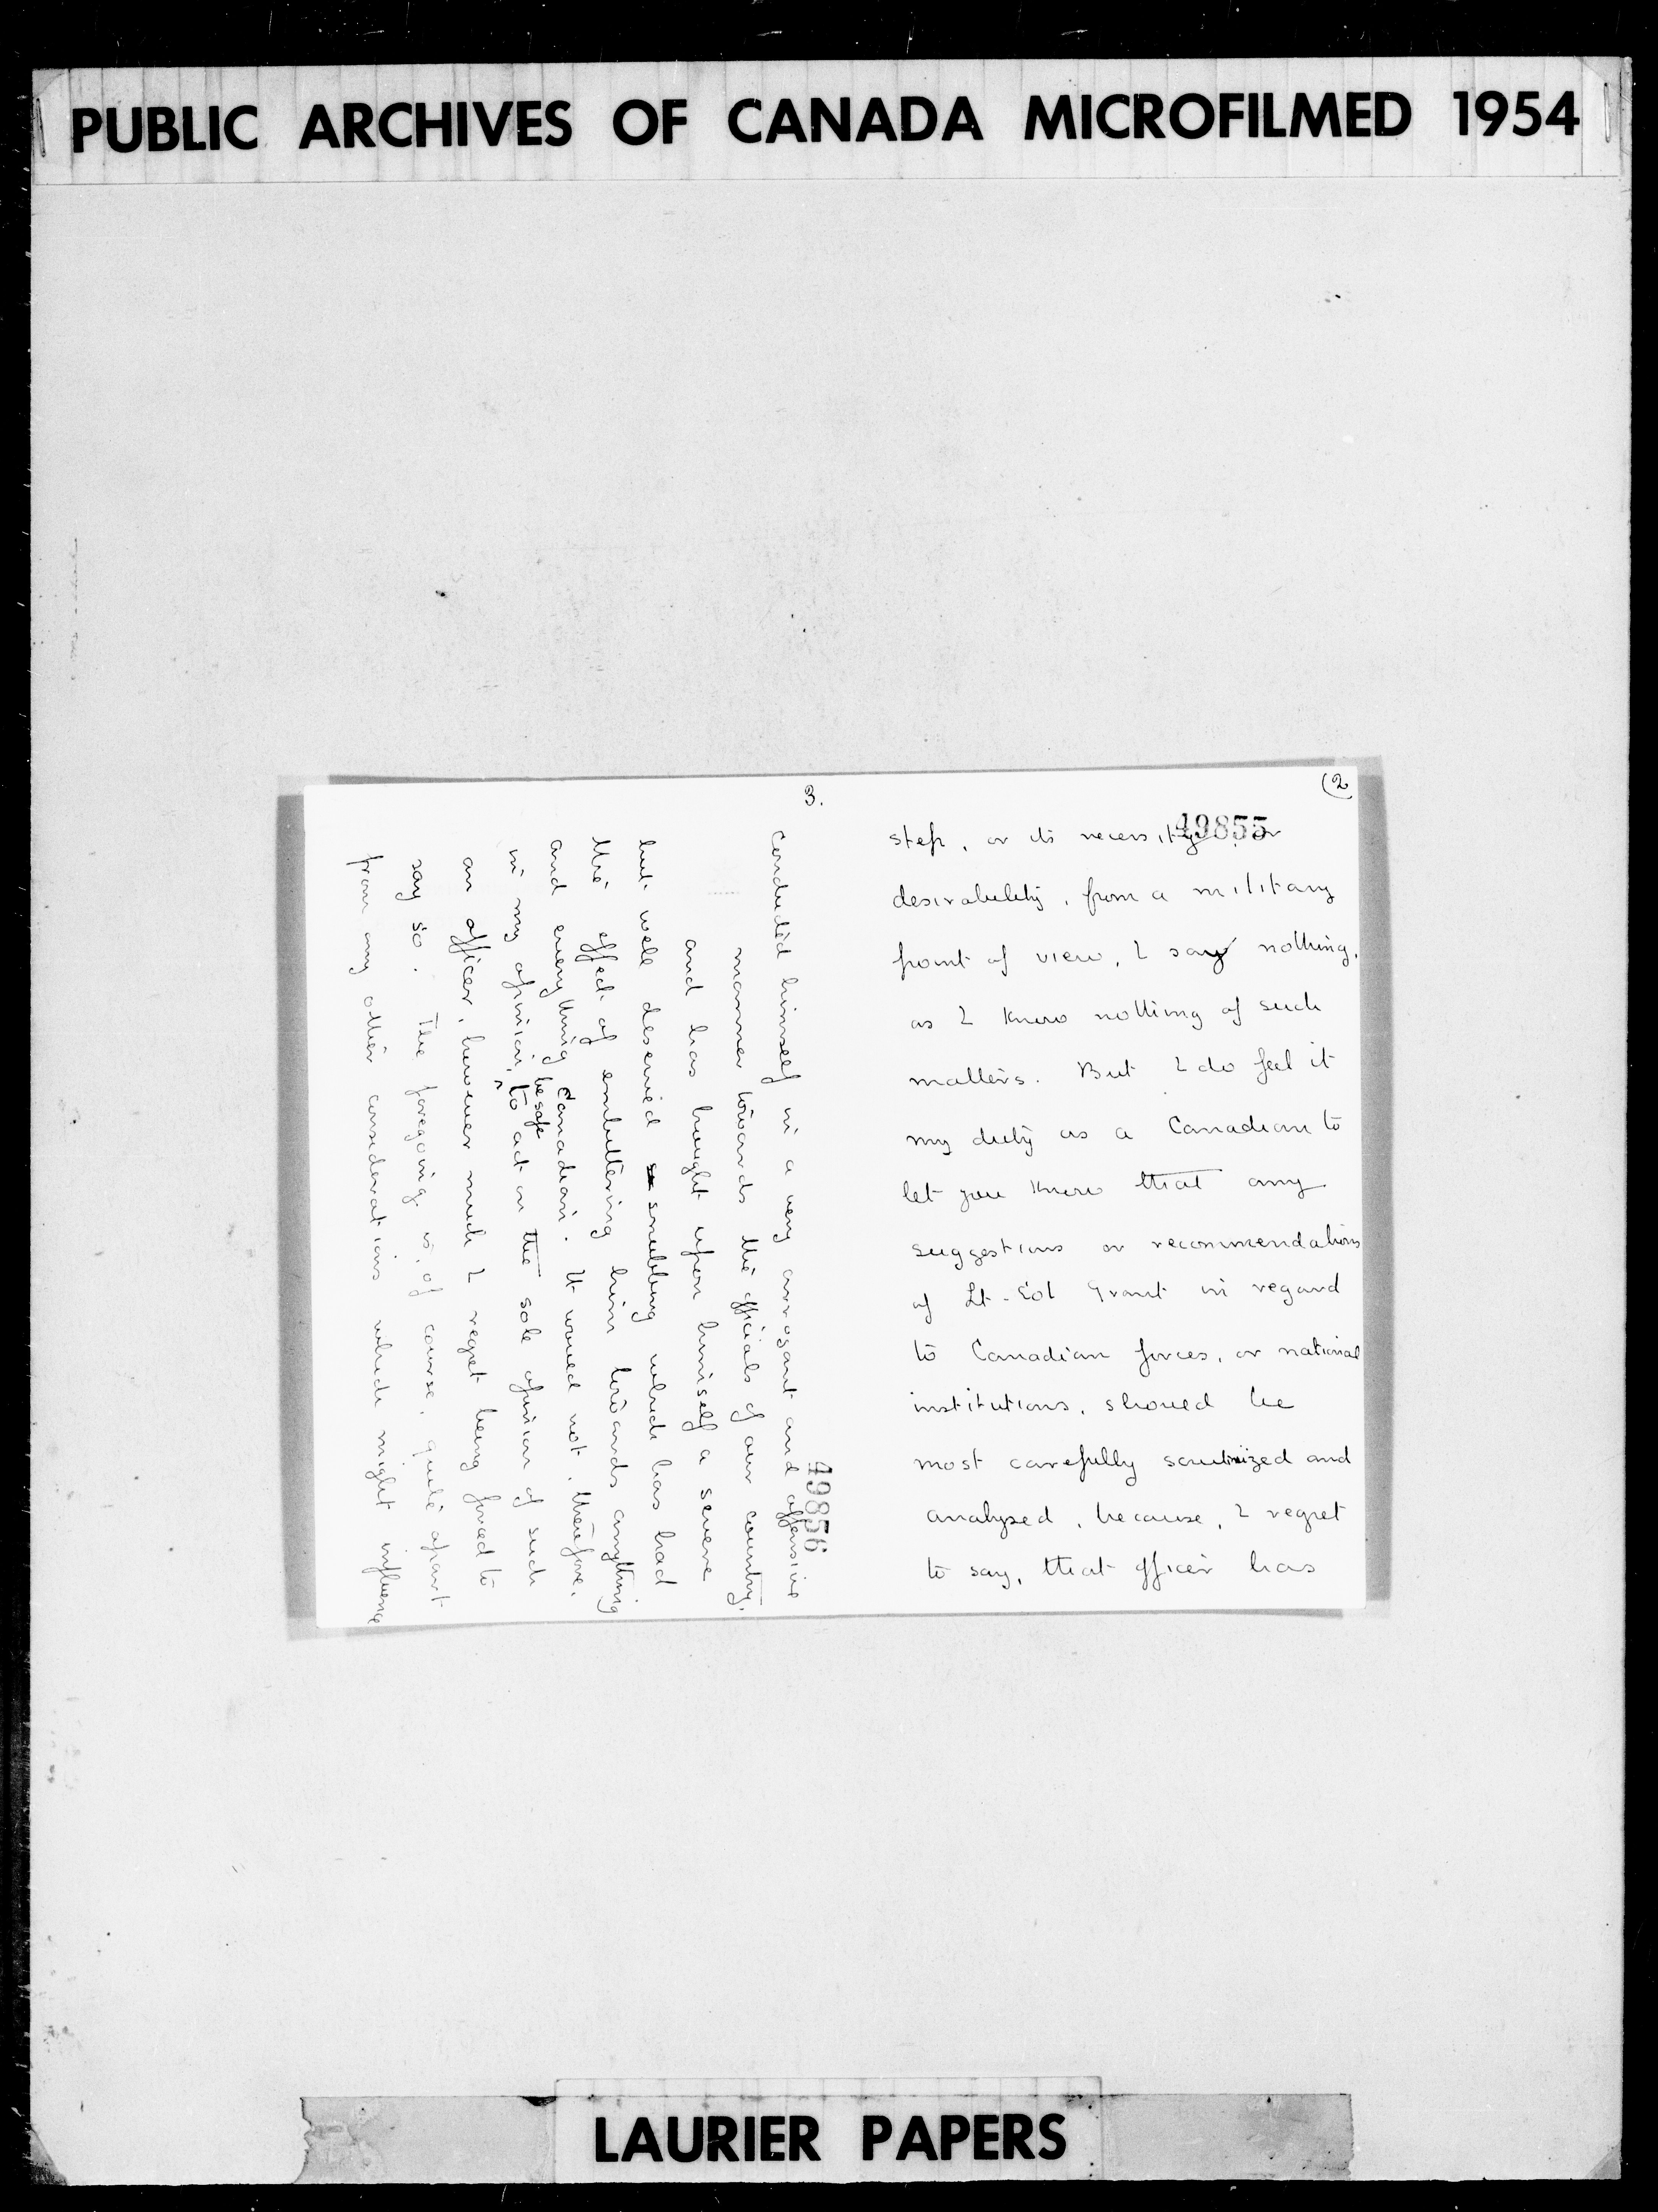 PUBLIC ARCHIVES OF CANADA MICROFILMED 1954
(2
49855
step, or its necessity, or
desirability, from a military
point of view, I say nothing,
as I know nothing of such
matters. But I do feel it
my duty as a Canadian to
let you know that any
suggestions or recommendations
of Lt-Col Grant in regard
to Canadian forces, or national
institutions, should be
most carefully scrutinized and
analyzed, because, I regret
to say, that officer has
3.
49856
conducted himself in a very arrogant and offensive
manner towards the officials of our country,
and has brought upon himself a severe
but well deserved snubbing which has had
the effect of embittering him towards anything
and everything Canadian. It would not, therefore,
in my opinion, be safe to act on the sole opinion of such
an officer, however much I regret being forced to
say so. The foregoing is, of course, quite apart
from any other considerations which might influence
LAURIER PAPERS